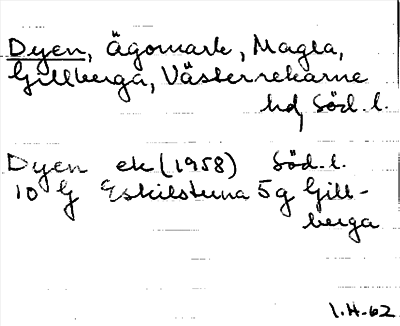 Dyen, Ägomark, Magla,
Gillberga, Västerrekarne
hd, Söd. l.
Dyen ek (1958) Söd. l.
10 G Eskilstuna 5g Gill-
berga
I.H. 62